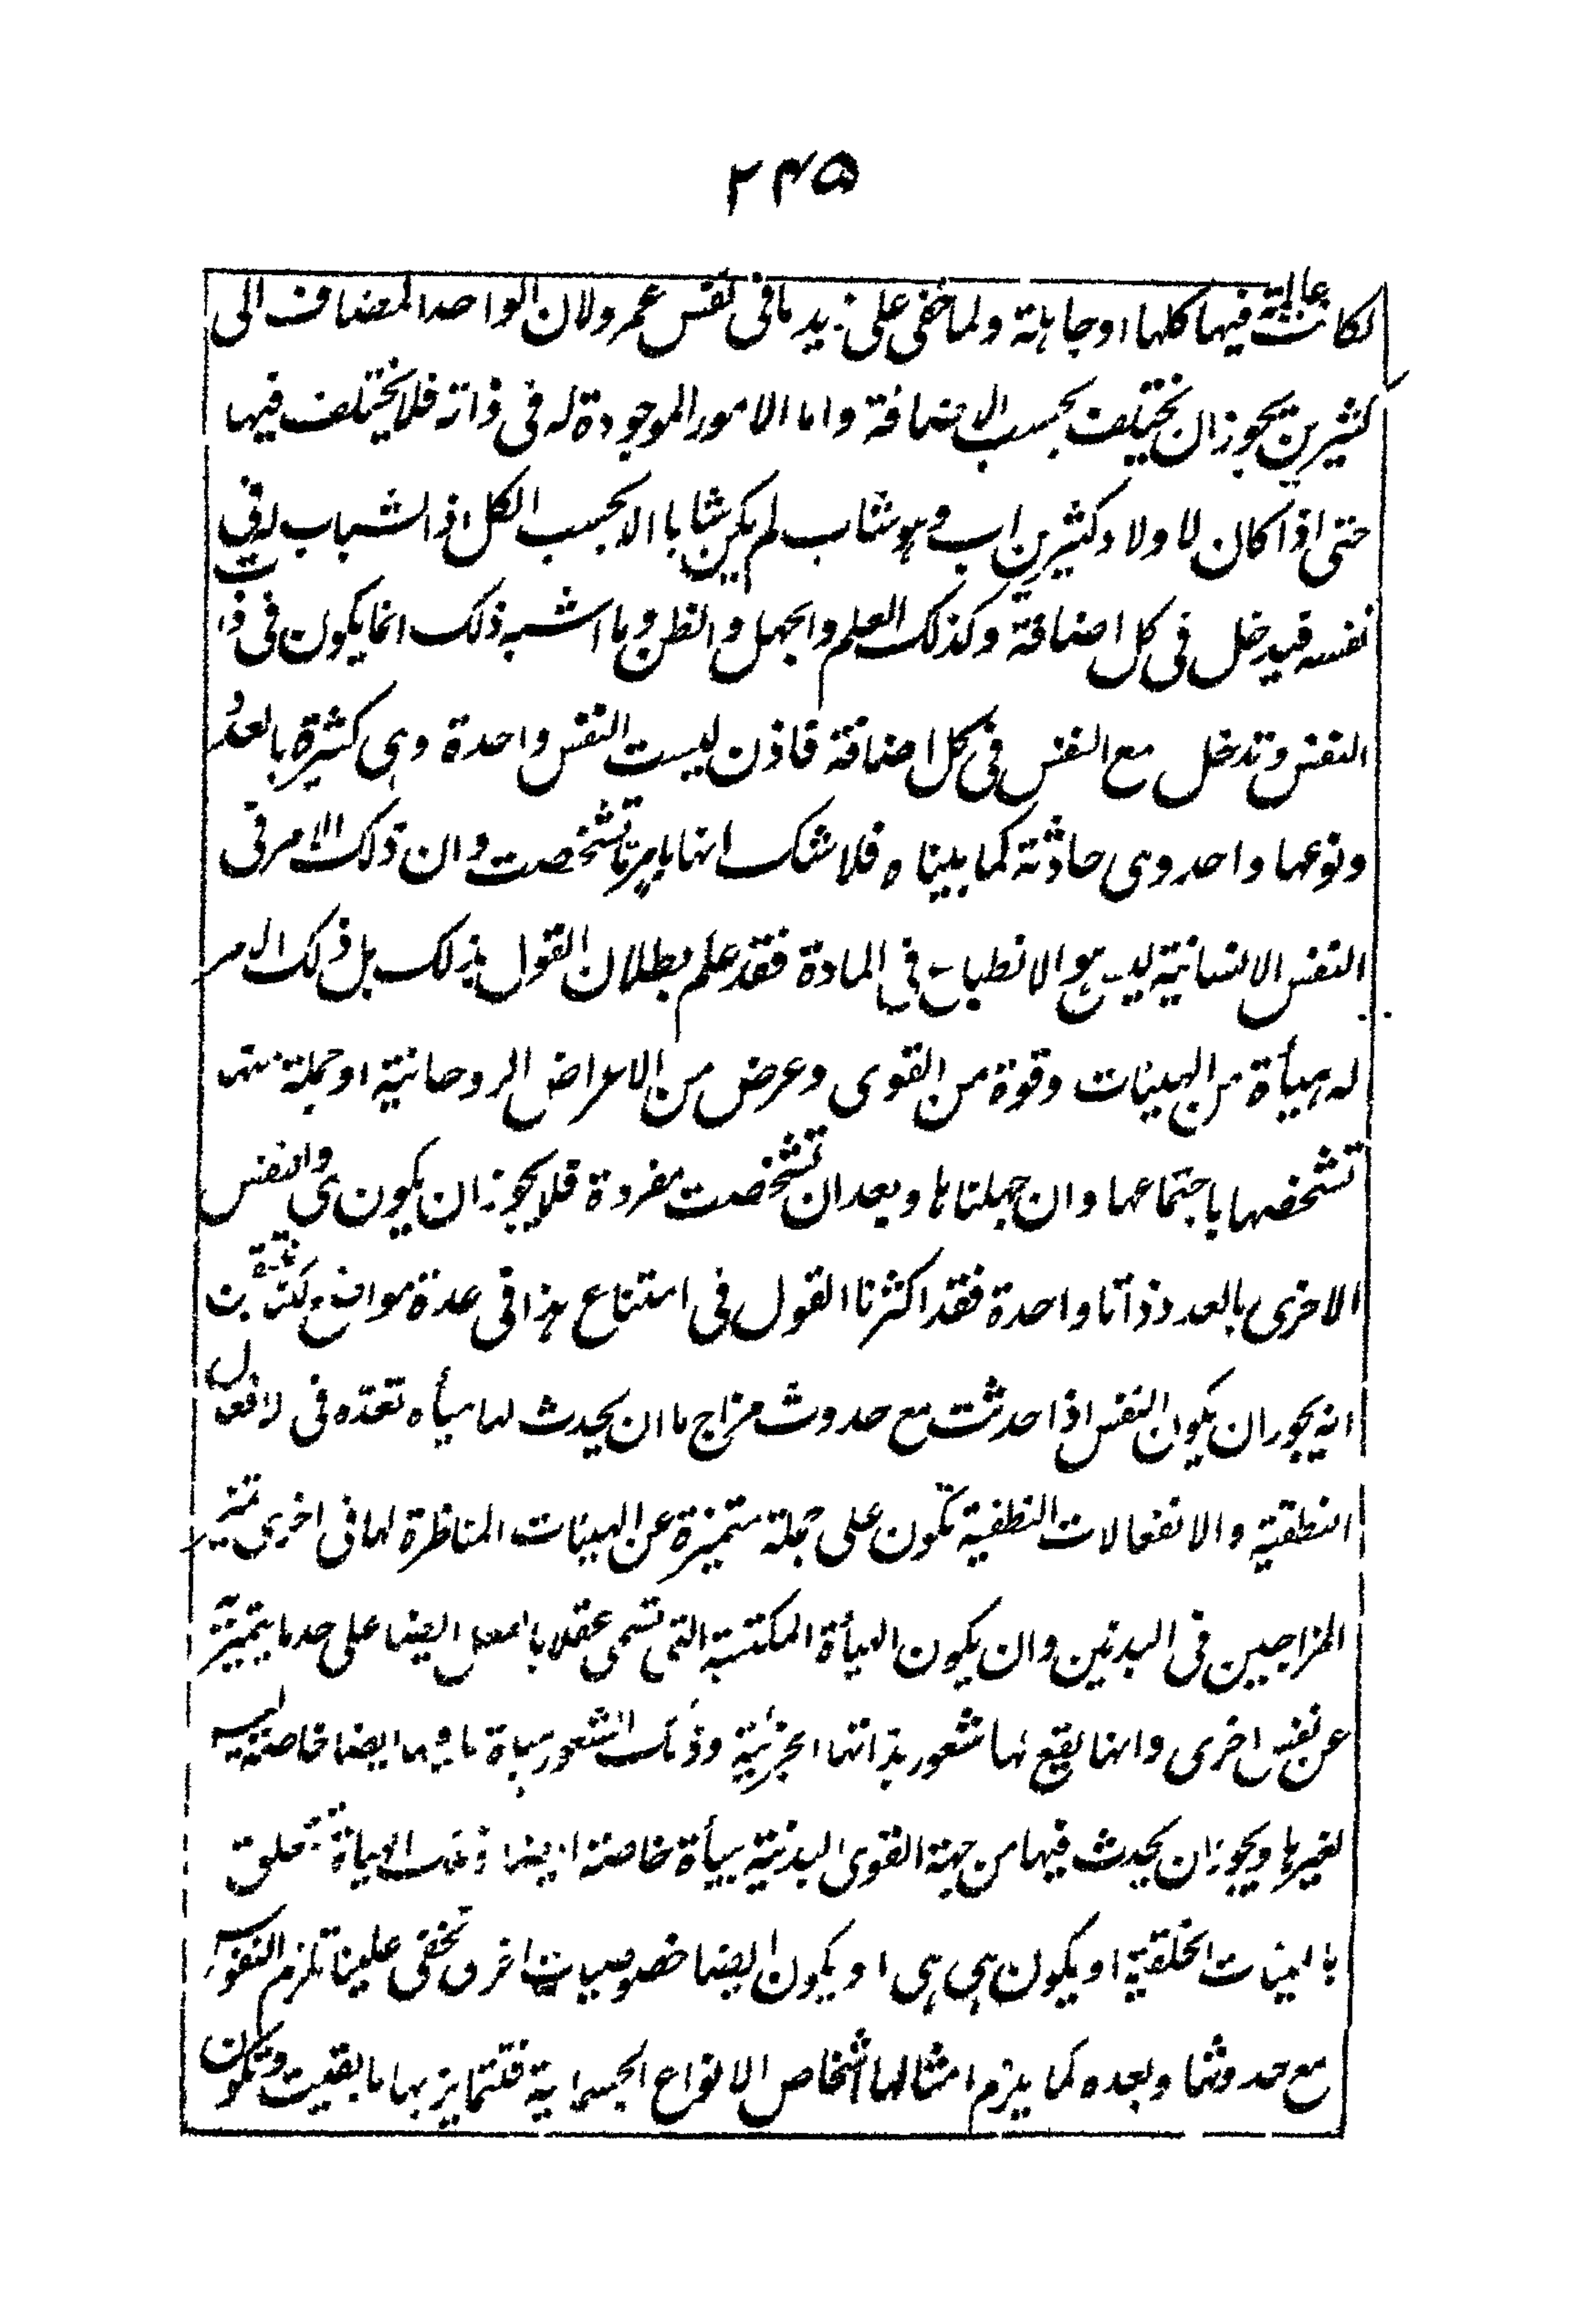 ۲۴۵
لكانت عالمة فيها كلها او جاهلة ولما خفى على زيد ما فى نفس عمرو لان الواحد المضاف الى
كثيرين يجوز ان يختلف بحسب الاضافة واما الامور الموجودة له فى ذاته فلا يختلف فيها
حتى اذا كان لاولاد كثيرين اب وهو شاب لم يكن شابا الا بحسب الكل اذ الشباب له فى
نفسه فيدخل فى كل اضافة وكذلك العلم والجهل والظن وما اشبه ذلك انما يكون فى ذات
النفس وتدخل مع النفس فى كل اضافة فاذن ليست النفس واحدة وهى كثيرة بالعدد
ونوعها واحد وهى حادثة كما بيناه فلا شك انها بامر ما تشخصت وان ذلك الامر فى
النفس الانسانية ليس هو الانطباع فى المادة فقد علم بطلان القول بذلك بل ذلك الامر
له هيأة من الهيئات وقوة من القوى وعرض من الاعراض الروحانية او جملة منها
تشخصها باجتماعها وان جهلناها وبعد ان تشخصت مفردة فلا يجوز ان يكون هى والنفس
الاخرى بالعدد ذاتا واحدة فقد اكثرنا القول فى امتناع هذا فى عدة مواضع لكنا نتيقن
انه يجوز ان يكون النفس اذا حدثت مع حدوث مزاج ما ان يحدث لها هيأه تعده فى الافعال
النطقية والانفعالات النطقية تكون على جملة متميزة عن الهيئات المناظرة لها فى اخرى تميز
المزاجين فى البدنين وان يكون الهيأة المكتسبة التى تسمى عقلا بالفعل ايضا على حد ما يتميز به
عن نفس اخرى وانها يقع لها شعور بذاتها الجزئية وذلك الشعور هيأة ما فيها ايضا خاصة ليس
لغيرها ويجوز ان يحدث فيها من جهة القوى البدنية هيأة خاصة ايضا وتلك الهيأة تتعلق
بالهيئات الخلقية او يكون هى هى او يكون ايضا خصوصيات اخرى تخفى علينا تلزم النفوس
مع حدوثها وبعده كما يلزم امثالها اشخاص الانواع الجسمانية فتتمايز بها ما بقيت وتكون